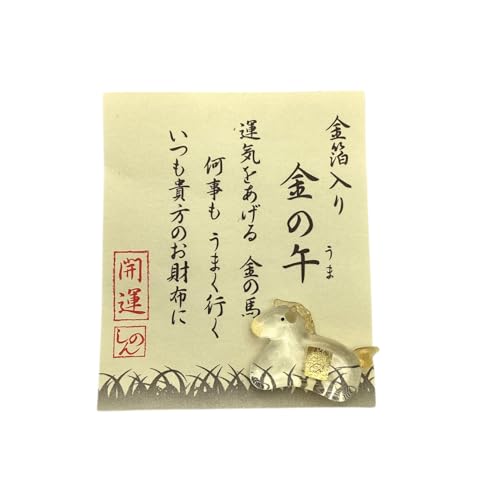 金箔入り
金の午
うま
運気をあげる 金の馬
何事も うまく行く
いつも貴方のお財布に
開運
しのん